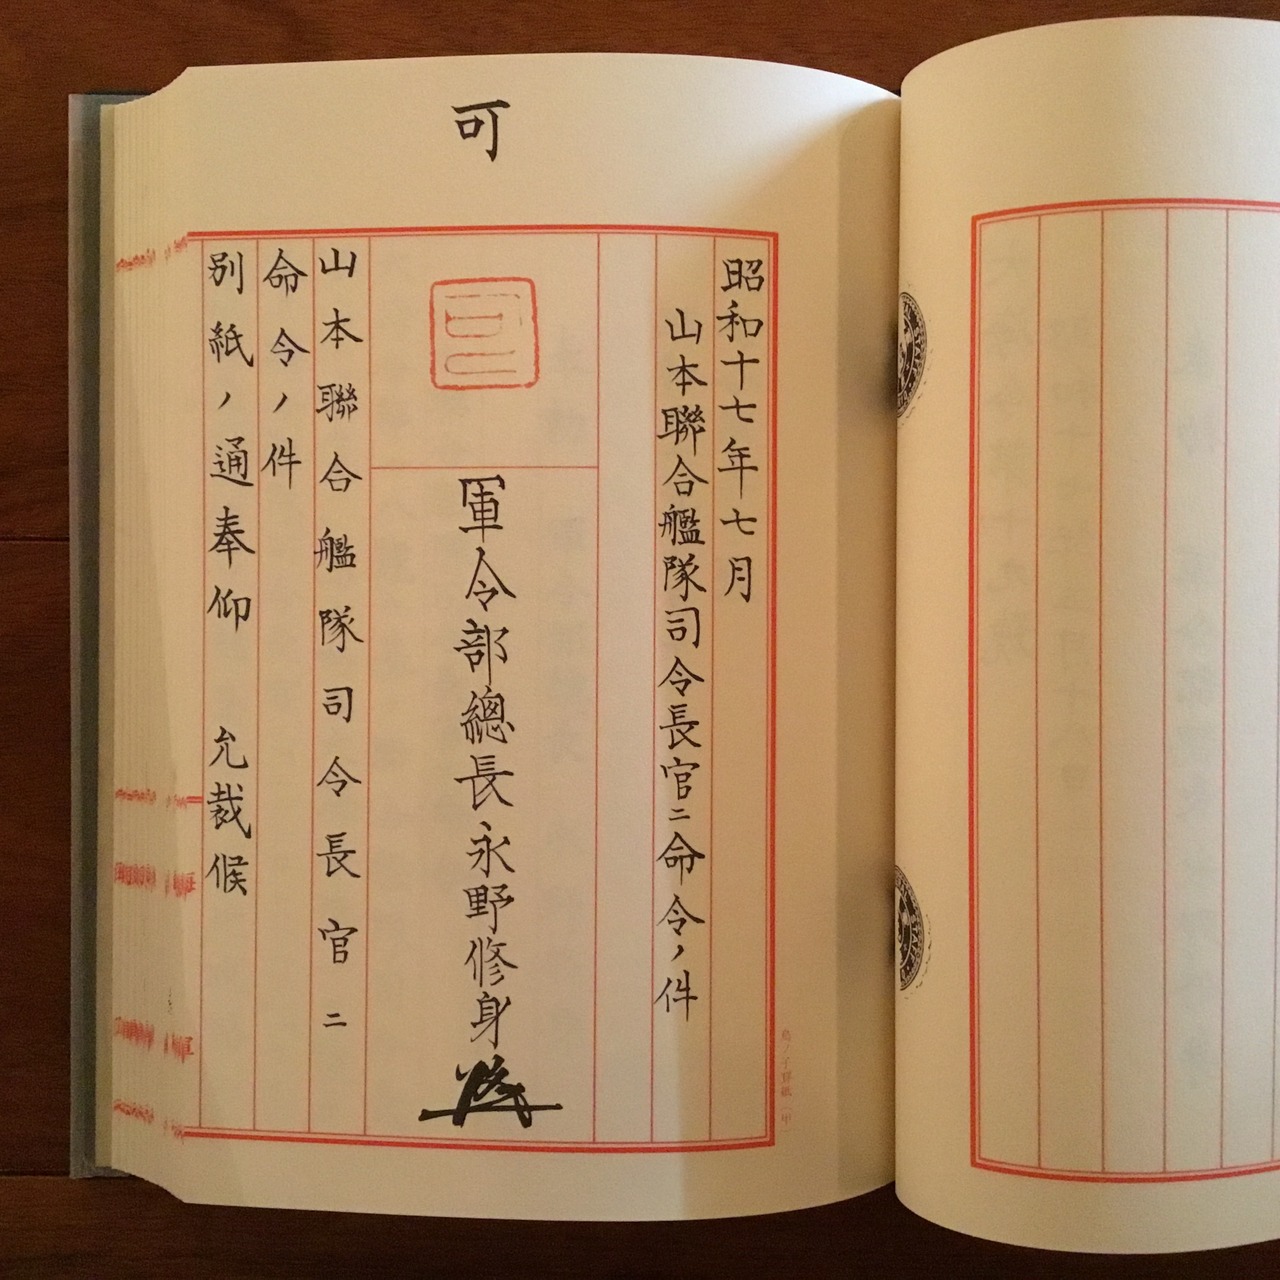 可
昭和十七年七月
山本聯合艦隊司令長官ニ命令ノ件
軍令部總長永野修身
山本聯合艦隊司令長官ニ
命令ノ件
別紙ノ通奉仰　允裁候